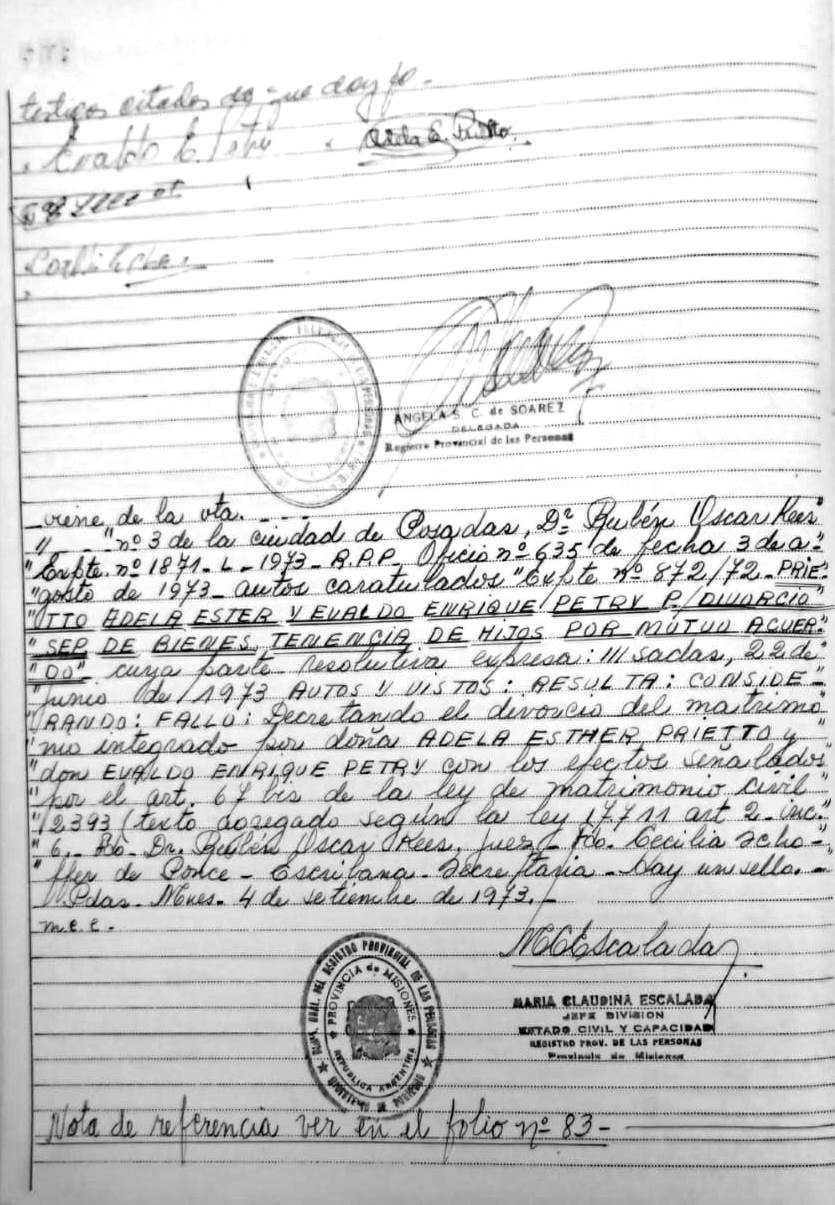 testigos citados de que doy fe.-
Evaldo E. Petry Adela E. Prietto
ANGELA S. C. de SOAREZ
DELEGADA
Registro Provincial de las Personas
_viene de la vta. _ . _ . _
" "nº 3 de la ciudad de Posadas, Dr. Rubén Oscar Kees"
"Expte. nº 1871-L-1973-R.P.P. Oficio nº 635 de fecha 3 de a="
"gosto de 1973- autos caratulados "Expte nº 872/72- PRIE-"
"TTO ADELA ESTER Y EVALDO ENRIQUE PETRY P/DIVORCIO"
"SEP DE BIENES, TENENCIA DE HIJOS POR MUTUO ACUER-"
"DO" cuya parte resolutiva expresa: ///sadas, 22 de"
"junio de 1973 AUTOS Y VISTOS: RESULTA: CONSIDE-"
"RANDO: FALLO: Decretando el divorcio del matrimo"
"nio integrado por doña ADELA ESTHER PRIETTO y"
"don EVALDO ENRIQUE PETRY con los efectos señalados"
"por el art. 67 bis de la ley de matrimonio civil"
"2393 (texto agregado según la ley 17.711 art 2- inc."
"6_ Fdo. Dr. Rubén Oscar Kees. Juez - Fdo. Cecilia Scho-"
"ffer de Ponce - Escribana - Secretaria - Hay un sello. -
Pdas. Mnes. 4 de setiembre de 1973. -
m.e.e. -
MCEscalada
MARIA CLAUDINA ESCALADA
JEFE DIVISION
ESTADO CIVIL Y CAPACIDAD
REGISTRO PROV. DE LAS PERSONAS
Provincia de Misiones
REGISTRO PROVINCIAL DE LAS PERSONAS
PROVINCIA de MISIONES
REPUBLICA ARGENTINA
Nota de referencia ver en el folio nº 83 -